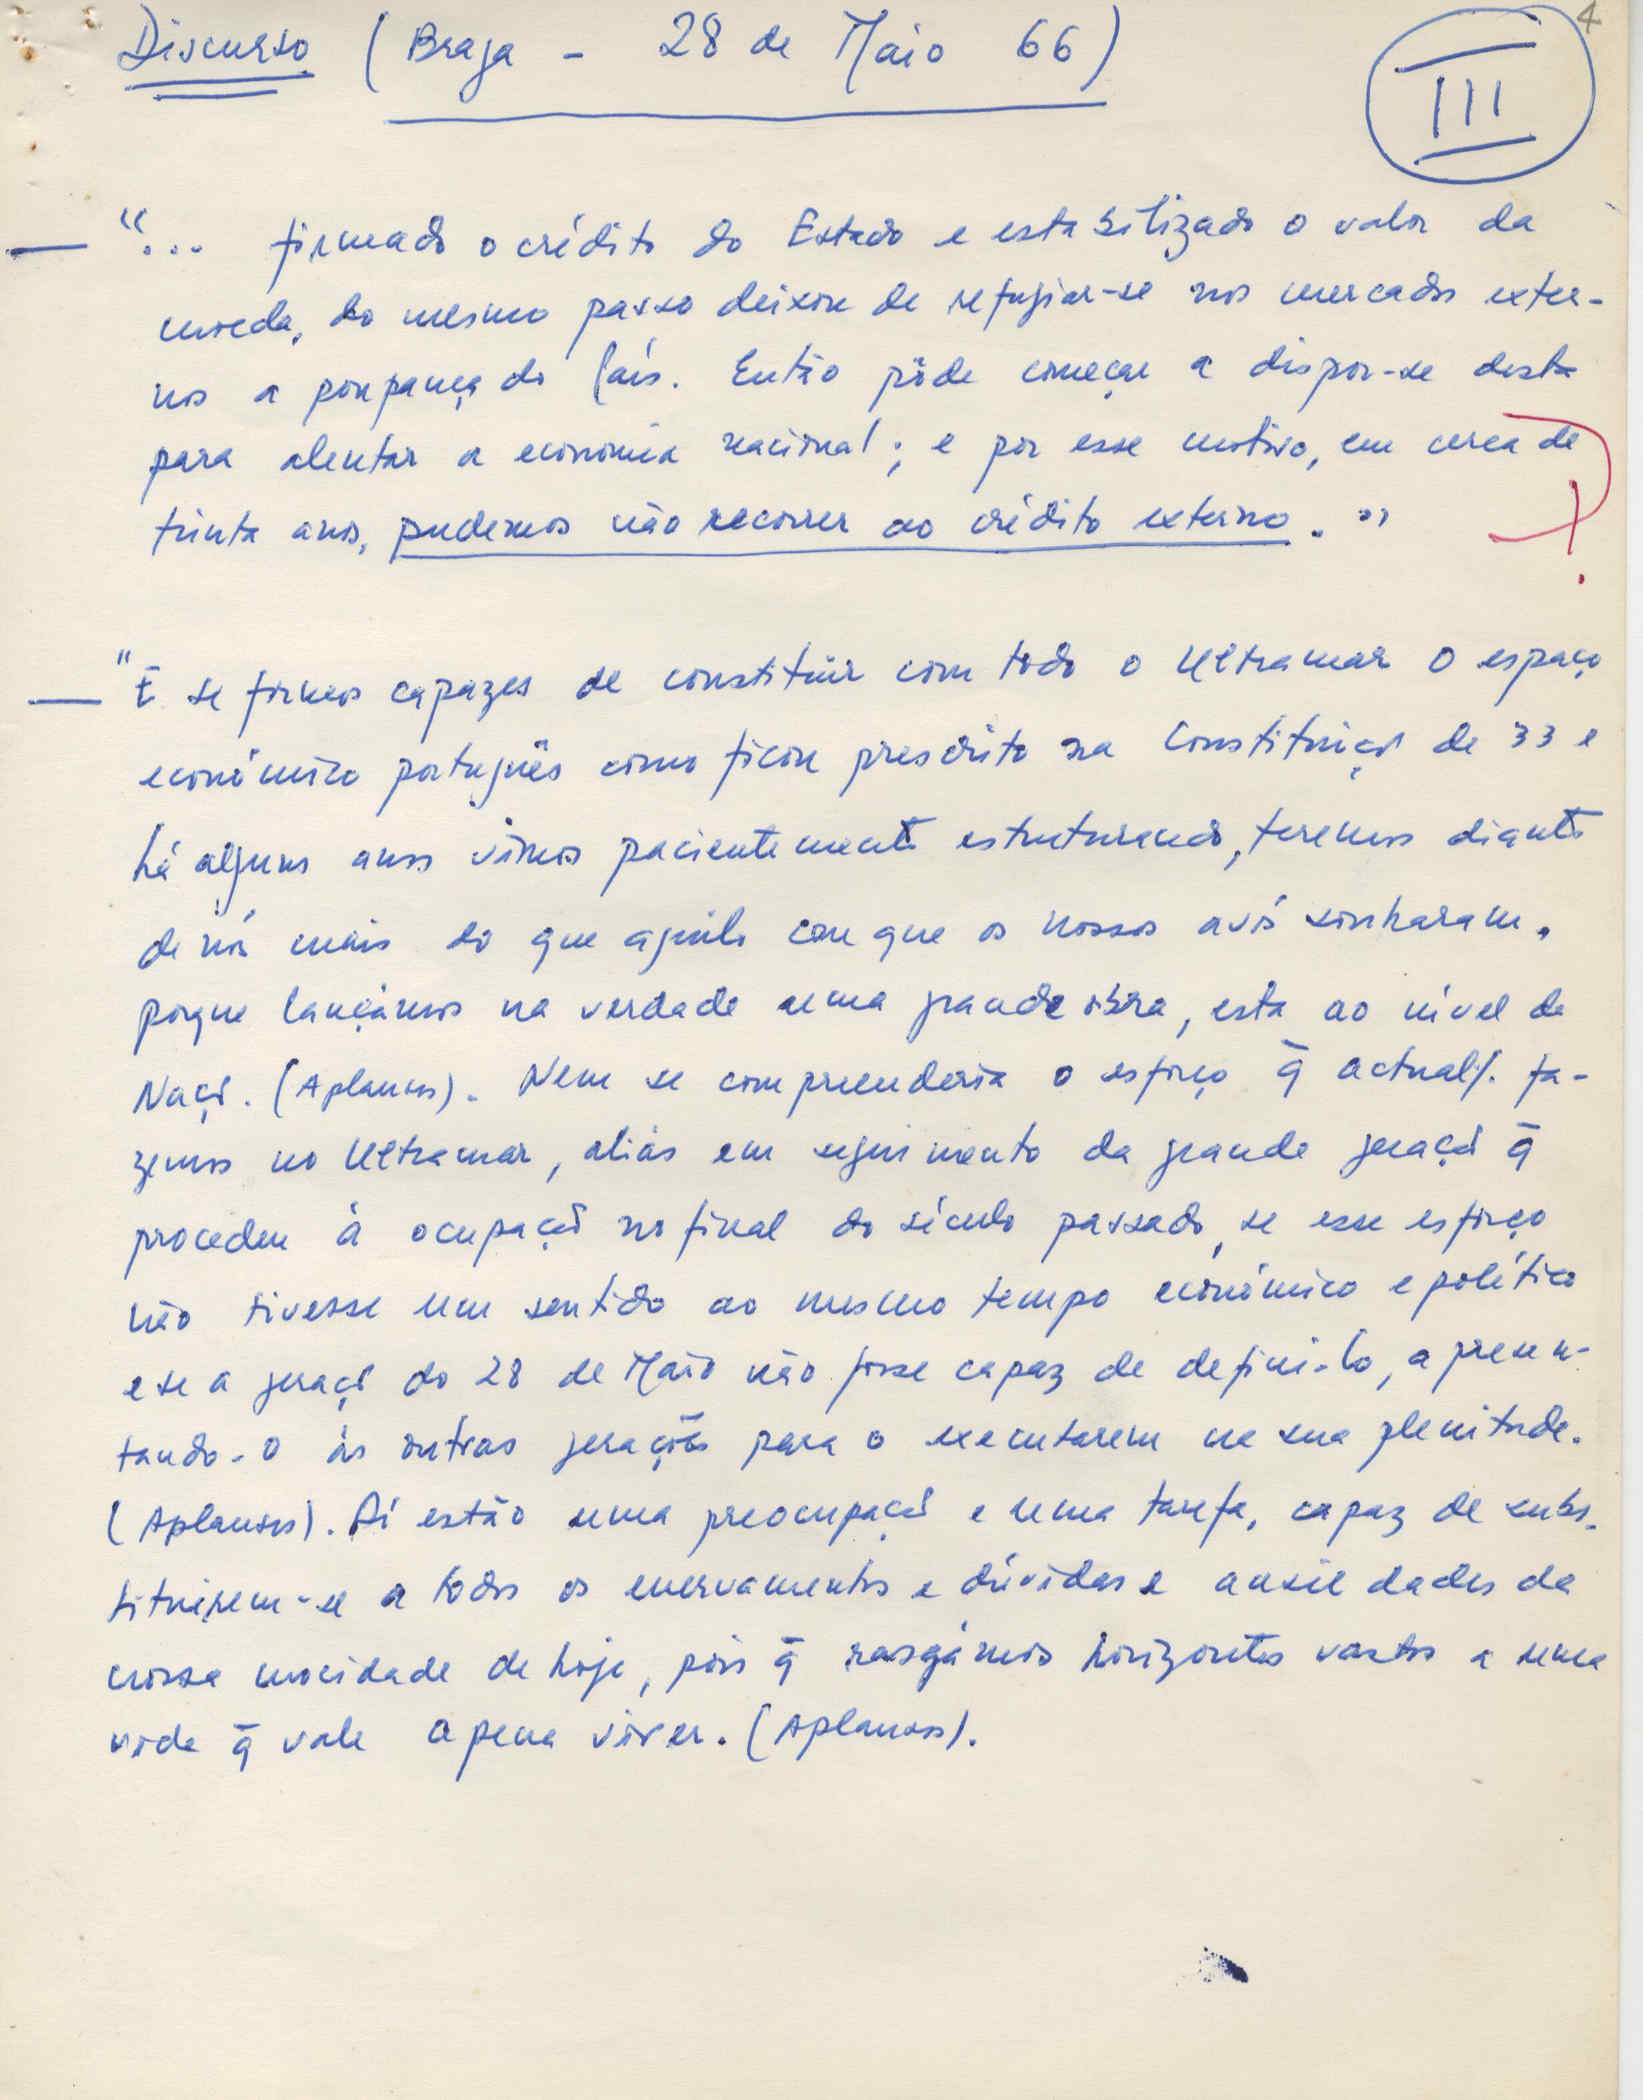 4
Discurso (Braga - 28 de Maio 66)
III
— "... firmado o crédito do Estado e estabilizado o valor da
moeda, do mesmo passo deixou de refugiar-se nos mercados exter-
nos a poupança do País. Então pôde começar a dispor-se desta
para alentar a economia nacional; e por esse motivo, em cerca de
trinta anos, pudemos não recorrer ao crédito externo."
?
— "E se formos capazes de constituir com todo o Ultramar o espaço
económico português como ficou prescrito na Constituiçã de 33 e
há alguns anos vimos pacientemente estruturando, teremos diante
de nós mais do que aquilo com que os nossos avós sonharam,
porque lançámos na verdade uma grande obra, esta ao nível da
Naçã. (Aplausos). Nem se compreenderia o esforço q̄ actual/. fa-
zemos no Ultramar, aliás em seguimento da grande geraçã q̄
procedeu à ocupaçã no final do século passado, se esse esforço
não tivesse um sentido ao mesmo tempo económico e político
e se a geraçã do 28 de Maio não fosse capaz de defini-lo, apresen-
tando-o às outras gerações para o executarem na sua plenitude.
(Aplausos). Aí estão uma preocupaçã e uma tarefa, capaz de subs-
tituirem-se a todos os enervamentos e dúvidas e ansiedades da
nossa mocidade de hoje, pois q̄ rasgámos horizontes vastos a uma
vida q̄ vale a pena viver. (Aplausos).